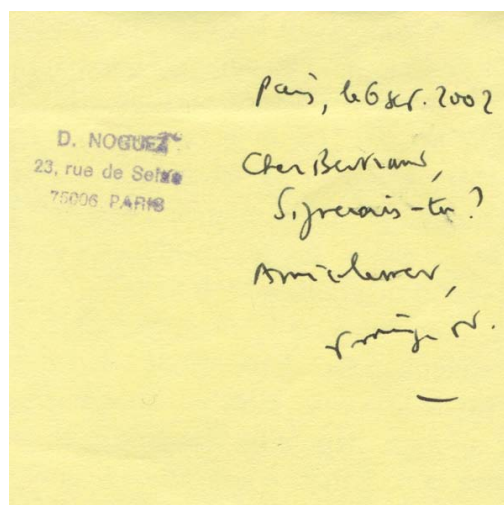 D. NOGUEZ
23, rue de Seine
75006 PARIS
Paris, le 6 sept. 2002
Cher Bertrand,
Signerais-tu ?
Amicalement,